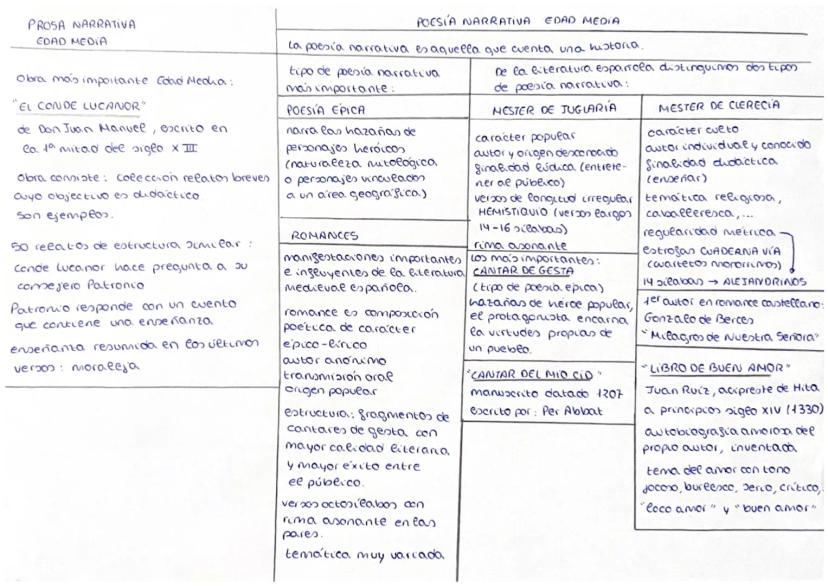 PROSA NARRATIVA
EDAD MEDIA
Obra más importante Edad Media:
"EL CONDE LUCANOR"
de Don Juan Manuel, escrito en
la 1ª mitad del siglo XIII
Obra consiste: colección relatos breves
cuyo objectivo es didáctico
son ejemplos.
50 relatos de estructura similar:
Conde Lucanor hace pregunta a su
consejero Patronio
Patronio responde con un cuento
que contiene una enseñanza
enseñanza resumida en los últimos
versos: moraleja
POESÍA NARRATIVA EDAD MEDIA
La poesía narrativa es aquella que cuenta una historia.
tipo de poesía narrativa
más importante:
POESÍA ÉPICA
narra las hazañas de
personajes heróicos
(naturaleza mitológica
o personajes vinculados
a un área geográfica)
ROMANCES
manifestaciones importantes
e influyentes de la literatura
medieval española.
romance es composición
poética de carácter
épico-lírico
autor anónimo
transmisión oral
origen popular
estructura: fragmentos de
cantares de gesta con
mayor calidad literaria
y mayor éxito entre
el público.
versos octosílabos con
rima asonante en las
pares.
temática muy variada
De la literatura española distinguimos dos tipos
de poesía narrativa:
MESTER DE JUGLARÍA
carácter popular
autor y origen desconocido
finalidad lúdica (entrete-
ner al público)
versos de longitud irregular
HEMISTIQUIO (versos largos
14-16 sílabas)
rima asonante
Los más importantes:
CANTAR DE GESTA
(tipo de poesía épica)
hazañas de héroe popular,
el protagonista encarna
la virtudes propias de
un pueblo.
"CANTAR DEL MIO CID"
manuscrito datado 1207
escrito por: Per Abbat
MESTER DE CLERECÍA
carácter culto
autor individual y conocido
finalidad didáctica
(enseñar)
temática religiosa,
caballeresca,...
regularidad métrica
estrofas CUADERNA VÍA
(cuartetos monorrimos)
14 sílabas → ALEJANDRINOS
1er autor en romance castellano:
Gonzalo de Berceo
"Milagros de Nuestra Señora"
"LIBRO DE BUEN AMOR"
Juan Ruíz, acipreste de Hita
a principios siglo XIV (1330)
autobiografía amorosa del
propio autor, inventada
tema del amor con tono
jocoso, burlesco, serio, crítico,.
"loco amor" y "buen amor"